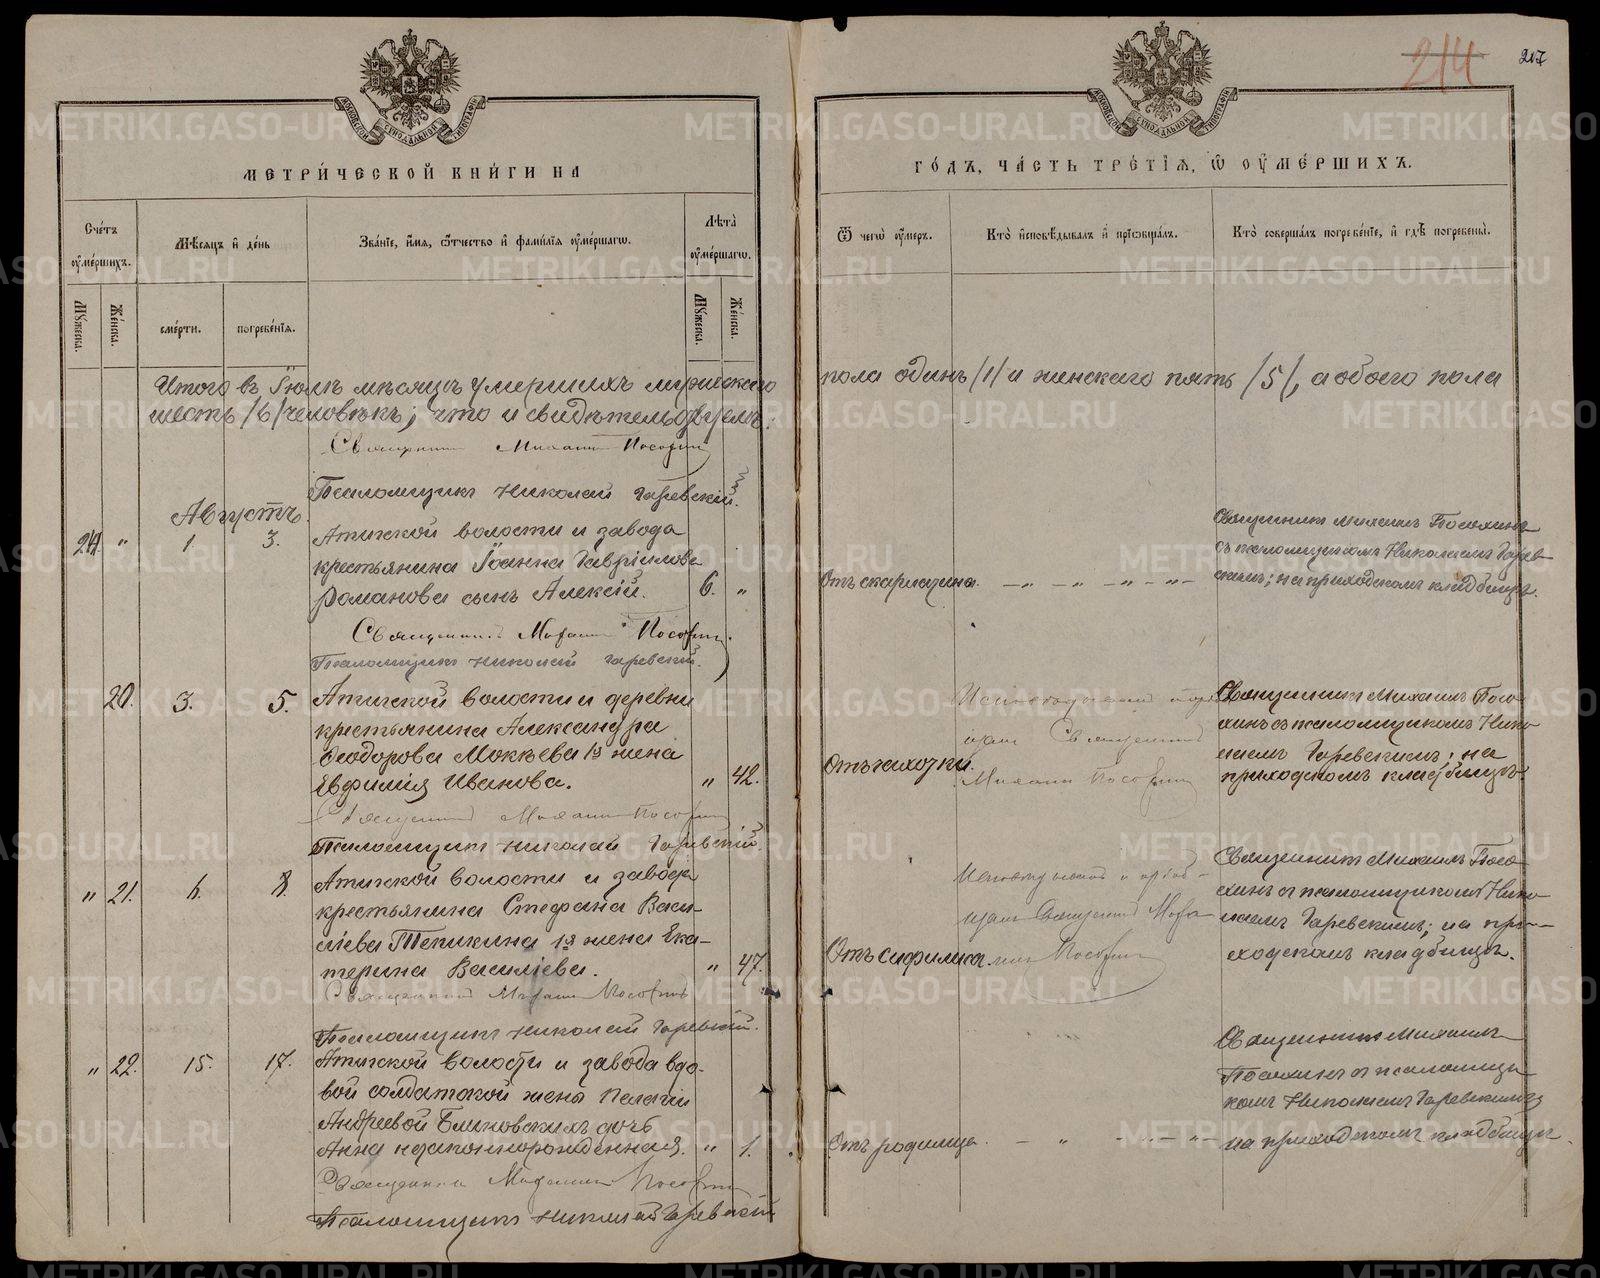 214
217
МЕТРИ́ЧЕСКОЙ КНИ́ГИ НА
ГО́ДЪ, ЧА́СТЬ ТРЕ́ТІѦ, Ѿ ОУ҆МЕ́РШИХЪ.
Сче́тъ оу҆ме́ршихъ.
Мѣ́сѧцъ и҆ де́нь
Зва́нїе, и҆́мѧ, ѻ҆́тчество и҆ фами́лїѧ оу҆ме́ршагѡ.
Лѣ́та оу҆ме́ршагѡ.
Ѿ чегѡ̀ оу҆́меръ.
Кто̀ и҆сповѣ́дывалъ и҆ прїѡбща́лъ.
Кто̀ соверша́лъ погребе́нїе, и҆ гдѣ̀ погребены̀.
Мꙋ́жеска.
Же́нска.
сме́рти.
погребе́нїѧ.
Мꙋ́жеска.
Же́нска.
Итого въ Іюлѣ мѣсяцѣ умершихъ мужескаго
пола одинъ /1/ и женскаго пять /5/, а обоего пола
шесть /6/ человѣкъ; что и свидѣтельствуемъ:
Священникъ Михаилъ
Псаломщикъ Николай Гаревскій.
Августъ.
24. " 1. 3.
Атигской волости и завода
крестьянина Іоанна Гавріилова
Романова сынъ Алексій. 6. "
Отъ скарлатины.
Священникъ Михаилъ
съ псаломщикомъ Николаемъ Гарев-
скимъ; на приходскомъ кладбищѣ.
Священникъ Михаилъ
Псаломщикъ Николай Гаревскій.
20. 3. 5.
Атигской волости и деревни
крестьянина Александра
Ѳеодорова Мокѣева 1я жена
Евфимія Иванова. " 42.
Отъ чахотки.
Священникъ
Михаилъ
Священникъ Михаилъ
съ псаломщикомъ Нико-
лаемъ Гаревскимъ; на
приходскомъ кладбищѣ.
Священникъ Михаилъ
Псаломщикъ Николай Гаревскій.
" 21. 6. 8.
Атигской волости и завода
крестьянина Стефана Васи-
ліева 1я жена Ека-
терина Василіева. " 47.
Отъ сифилиса.
Священникъ Миха-
илъ
Священникъ Михаилъ
съ псаломщикомъ Нико-
лаемъ Гаревскимъ; на при-
ходскомъ кладбищѣ.
Священникъ Михаилъ
Псаломщикъ Николай Гаревскій.
" 22. 15. 17.
Атигской волости и завода вдо-
вой солдатской жены Пелагіи
Андреевой Блиновскихъ дочь
Анна незаконнорожденная. " 1.
Отъ родимца.
Священникъ Михаилъ
съ псаломщи-
комъ Николаемъ Гаревскимъ
на приходскомъ кладбищѣ.
Священникъ Михаилъ
Псаломщикъ Николай Гаревскій
METRIKI.GASO-URAL.RU